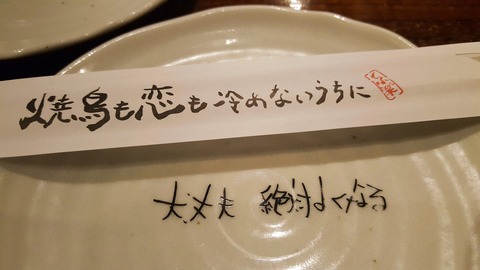 焼鳥も恋も冷めないうちに
大丈夫 絶対よくなる